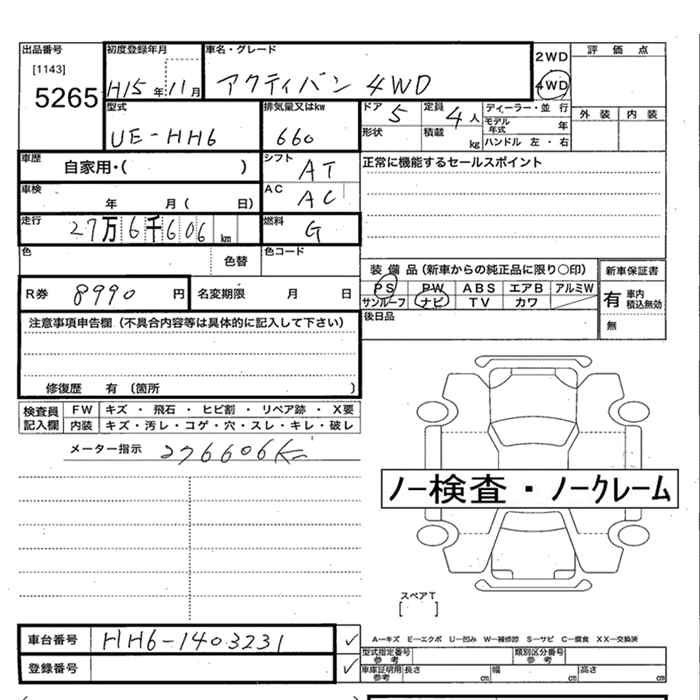 出品番号 初度登録年月 車名・グレード 評価点
[1143] 2WD
5265 H15年11月 アクティバン 4WD 4WD
型式 排気量又はkw ドア 5 定員 4人 ディーラー・並行 外装 内装
モデル年式 年
UE-HH6 660 形状 積載 kg ハンドル 左・右
車歴 自家用・( ) シフト AT 正常に機能するセールスポイント
車検 年 月( 日) AC AC
走行 27万6千606km 燃料 G
色 色替 色コード
装備品(新車からの純正品に限り○印) 新車保証書
R券 8990円 名変期限 月 日 PS PW ABS エアB アルミW 有 車内積込無効
サンルーフ ナビ TV カワ
注意事項申告欄(不具合内容等は具体的に記入して下さい) 後日品 無
修復歴 有(箇所 )
検査員 FW キズ・飛石・ヒビ割・リペア跡・X要
記入欄 内装 キズ・汚レ・コゲ・穴・スレ・キレ・破レ
メーター指示 276606K
ノー検査・ノークレーム
スペアT
[ ]
車台番号 HH6-1403231 ✓ A-キズ E-エクボ U-凹み W-補修跡 S-サビ C-腐食 XX-交換済
型式指定番号 参考 類別区分番号 参考
登録番号 ✓ 車庫証明用 参考 長さ cm 幅 cm 高さ cm